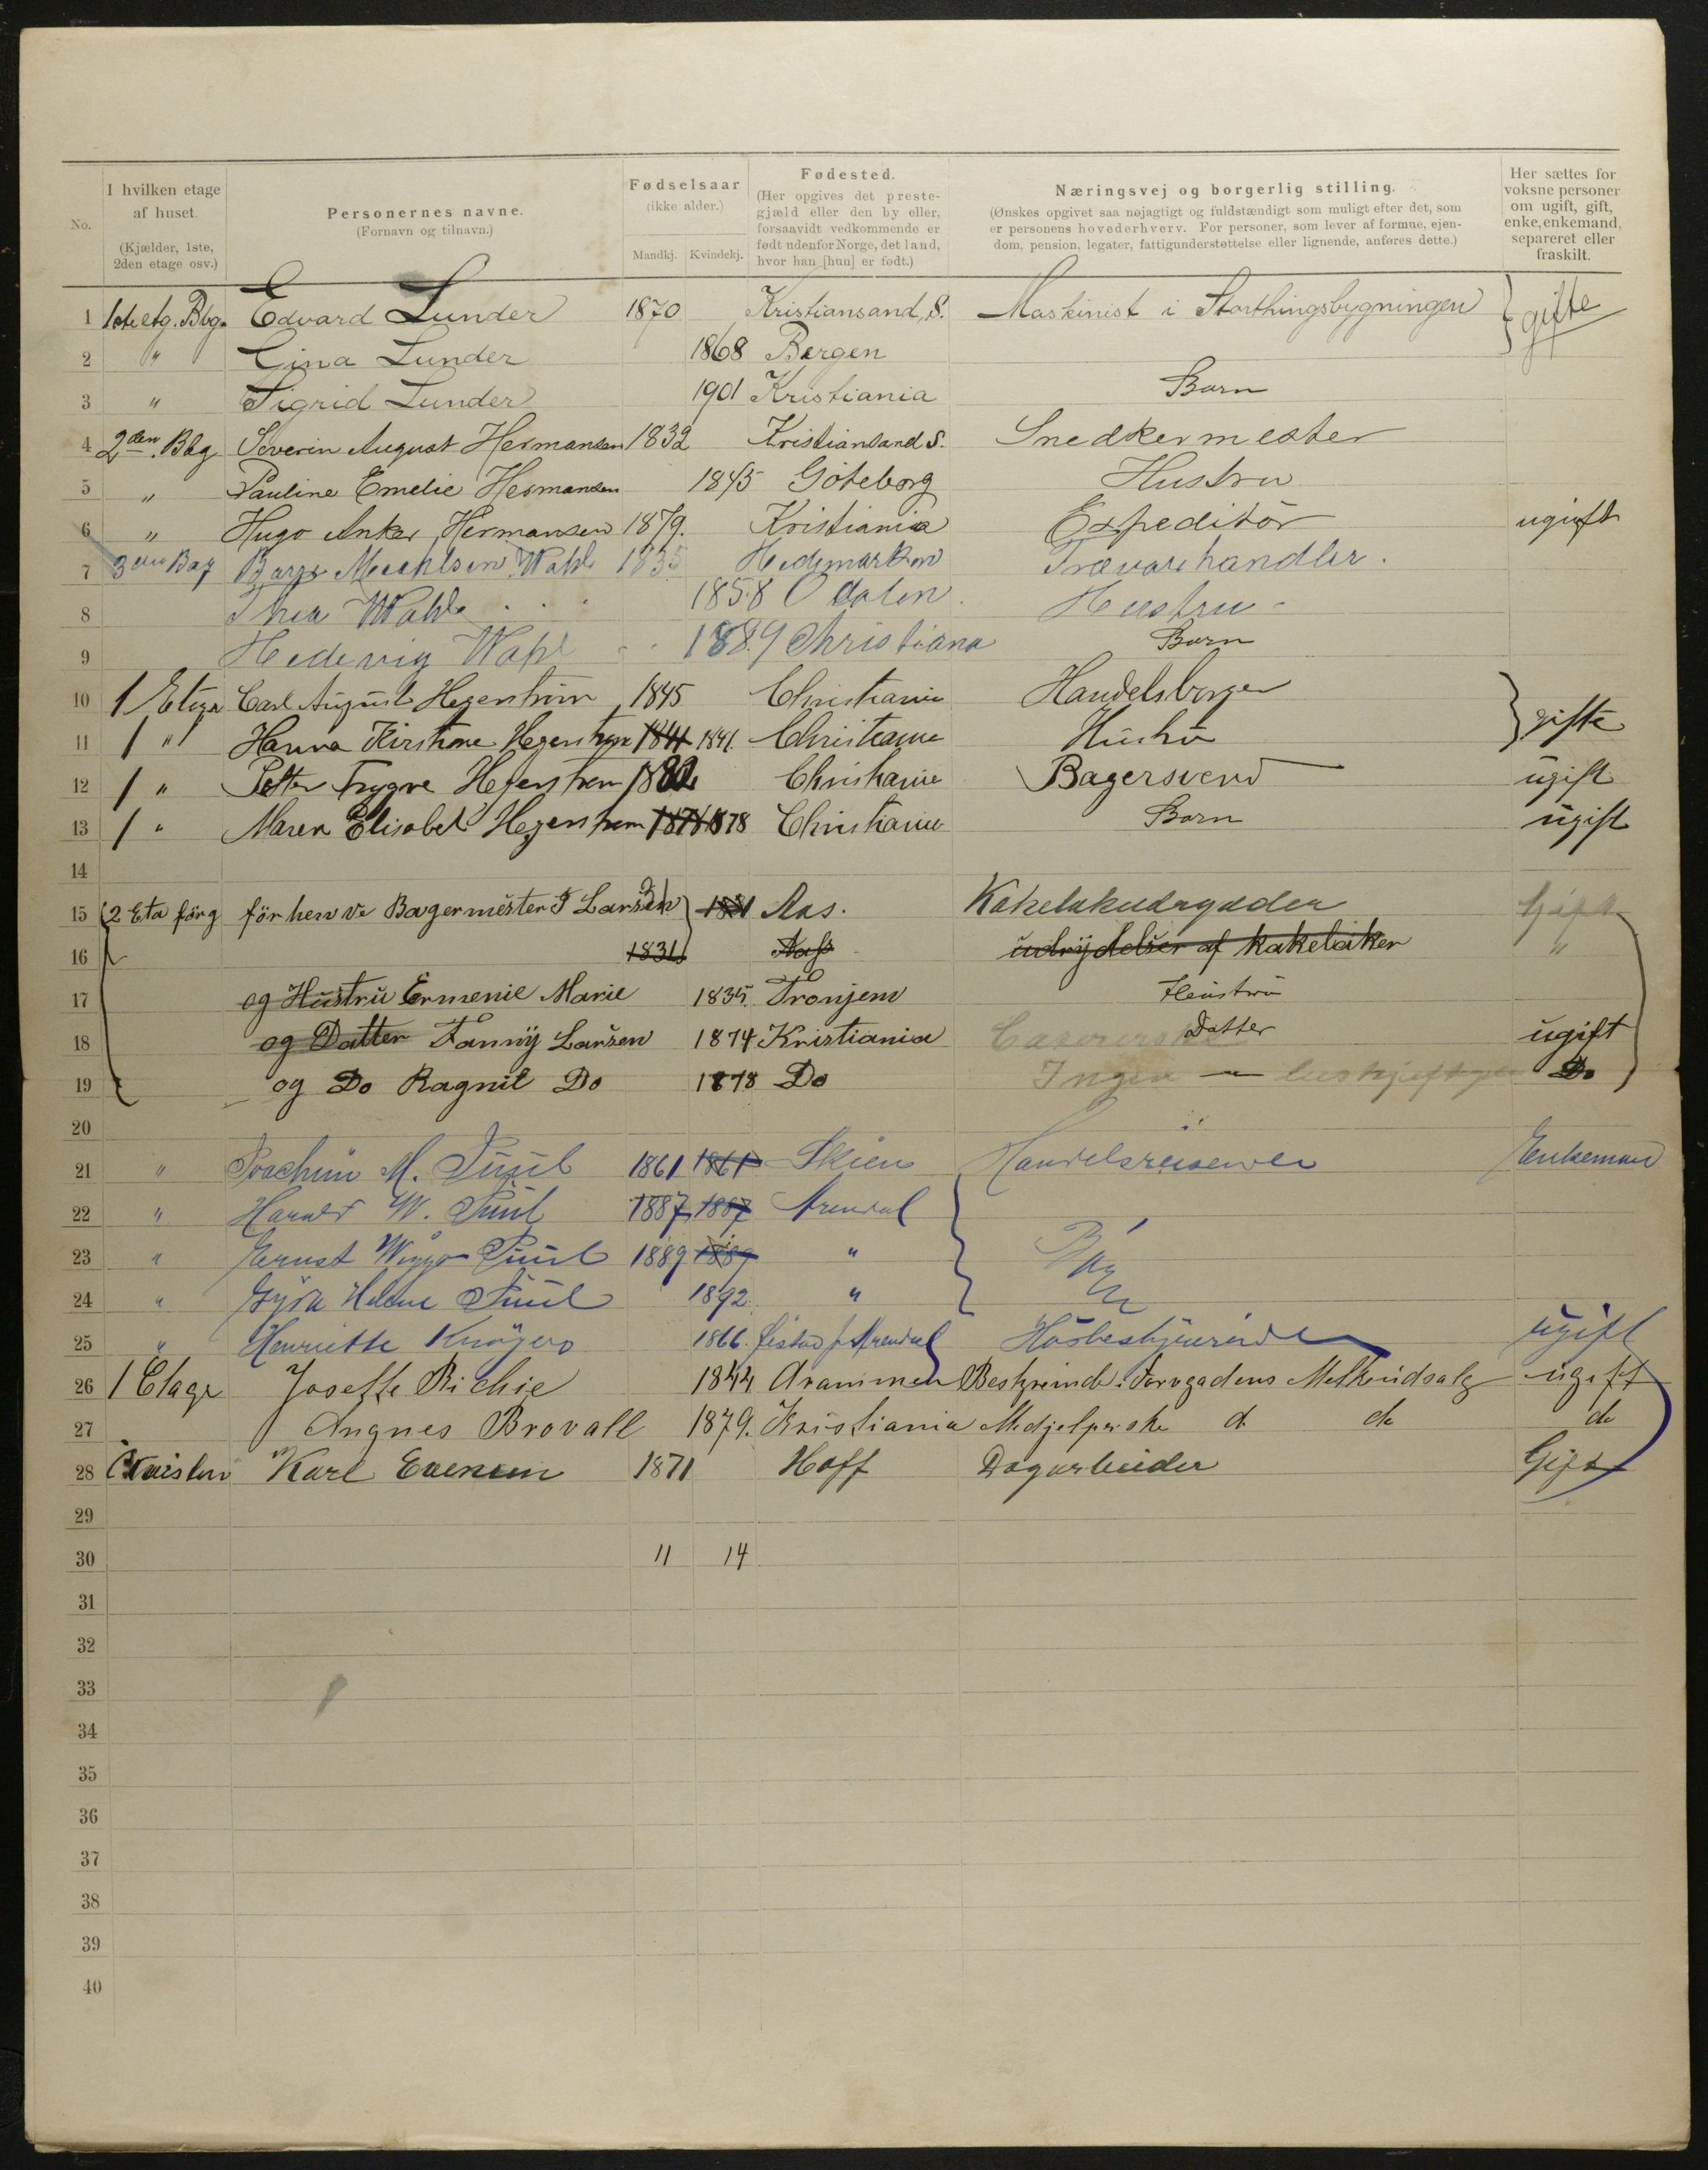 No.
I hvilken etage af huset.
(Kjælder, 1ste, 2den etage osv.)
Personernes navne.
(Fornavn og tilnavn.)
Fødselsaar
(ikke alder.)
Mandkj. Kvindekj.
Fødested.
(Her opgives det prestegjæld eller den by eller, forsaavidt vedkommende er født udenfor Norge, det land, hvor han [hun] er født.)
Næringsvej og borgerlig stilling.
(Ønskes opgivet saa nøjagtigt og fuldstændigt som muligt efter det, som er personens hovederhverv. For personer, som lever af formue, ejendom, pension, legater, fattigunderstøttelse eller lignende, anføres dette.)
Her sættes for voksne personer om ugift, gift, enke, enkemand, separeret eller fraskilt.
1 1ste etg. Bbg. Edvard Lunder 1870 Kristiansand, S. Maskinist i Storthingsbygningen gifte
2 " Gina Lunder 1868 Bergen
3 " Sigrid Lunder 1901 Kristiania Barn
4 2den Bbg Severin August Hermansen 1832 Kristiansand S. Snedkermester
5 " Pauline Emelie Hermansen 1845 Göteborg Hustru
6 " Hugo Anker Hermansen 1879. Kristiania Expeditör ugift
7 3 Bag Wahl 1835 Hedemarken Trævarehandler.
8 Thea Wahl 1858 Odalen. Hustru
9 Hedevig Wahl 1889 Christiana Barn
10 1 Etage Carl August Hegerstrøm 1845 Christiania Handelsborger
11 1 " Hanna Kirstine Hegerstrøm 1841 1841. Christiania Hustru gifte
12 1 " Petter Trygve Hegerstrøm 1882 Christiania Bagersvend ugift
13 1 " Maren Elisabet Hegerstrøm 1878 1878 Christiania Barn ugift
14
15 2 Eta förg förhenve Bagermester J Larsen 1831 Aas.
16 1831 Aas udrydelser af kakelaker "
17 og Hustru Ermenie Marie 1835. Tronjem Hustru
18 og Datter Fanny Larsen 1874 Kristiania Datter ugift
19 og Do Ragnil Do 1878 Do Ingen Do
20
21 " Joachim M. Juul 1861 1861 Skien Handelsreisende Enkemand
22 " Harald W. Juul 1887 1887 Arendal
23 " Ernst Wiggo Juul 1889 1889 "
24 " Helene Juul 1892 "
25 " Henriette 1866. Arendal Husbestyrerinde ugift
26 1 Etage Joseffe Richie 1844 Drammen Bestyrerinde i Torvgadens Melkeudsalg ugift
27 Angnes Brovall 1879. Kristiania Medjelperske do do do
28 Karl Evensen 1871 Hoff Dagarbeider Gift
29
30 11 14
31
32
33
34
35
36
37
38
39
40